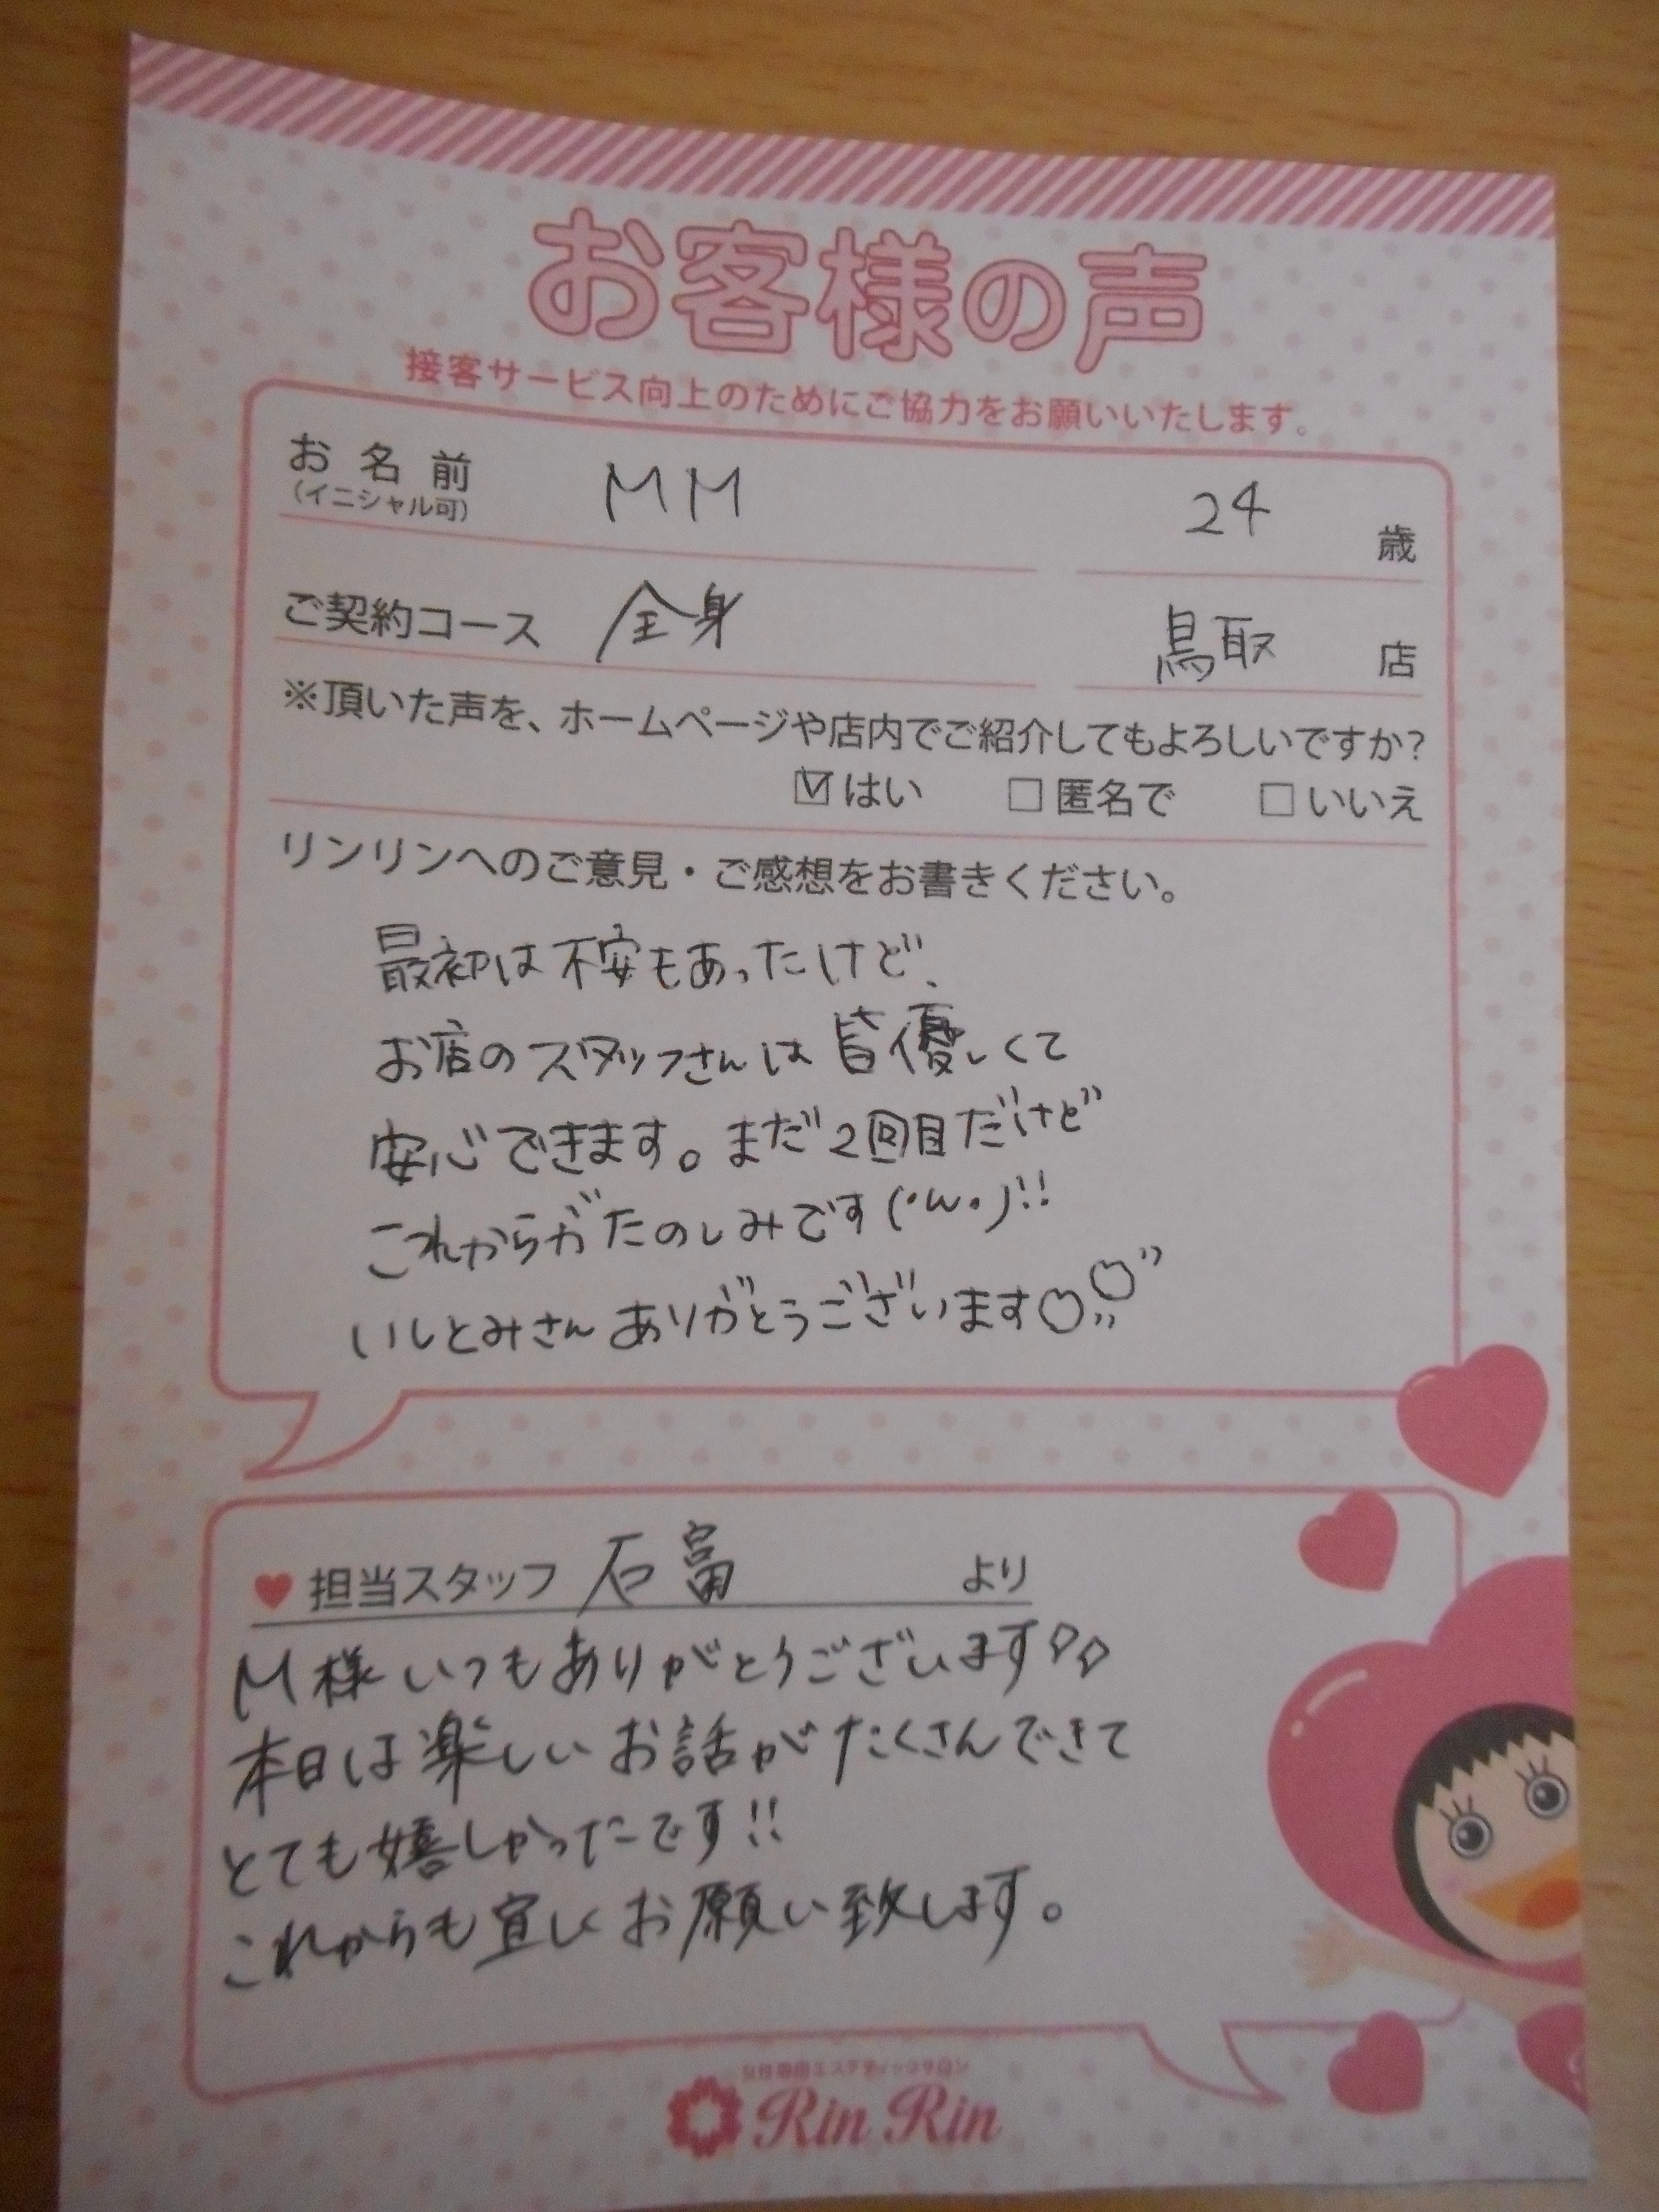 お客様の声
接客サービス向上のためにご協力をお願いいたします。
お名前 MM 24 歳
(イニシャル可)
ご契約コース 全身 鳥取 店
※頂いた声を、ホームページや店内でご紹介してもよろしいですか?
☑はい □匿名で □いいえ
リンリンへのご意見・ご感想をお書きください。
最初は不安もあったけど、
お店のスタッフさんは皆優しくて
安心できます。まだ2回目だけど
これからがたのしみです(・ω・)!!
いしとみさんありがとうございます♡♡
♥担当スタッフ 石富 より
M様いつもありがとうございます♢♢
本日は楽しいお話がたくさんできて
とても嬉しかったです!!
これからも宜しくお願い致します。
女性専用エステティックサロン
Rin Rin